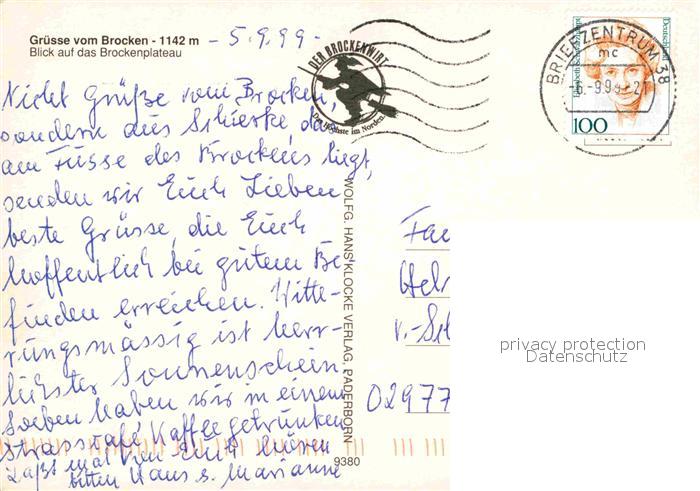 Grüsse vom Brocken - 1142 m
Blick auf das Brockenplateau
- 5.9.99 -
Nicht Grüße vom Brocken,
sondern aus Schierke, das
am Füsse des Brockens liegt,
senden wir Euch Lieben
beste Grüsse, die Euch
hoffentlich bei gutem Be
finden erreichen. Witte-
rungsmässig ist herr-
lichster Sonnenschein.
Soeben haben wir in einem
Strasscafé Kaffee getrunken
Laßt mal von Euch hören
bitten Hans u. Marianne
DER BROCKENWIRT
Der Höchste im Norden
BRIEFZENTRUM 38
mc
-6.-9.99-21
Deutschland
100
WOLFG. HANS KLOCKE VERLAG, PADERBORN
9380
Fam
Hel
v.-Sch
02977
privacy protection
Datenschutz